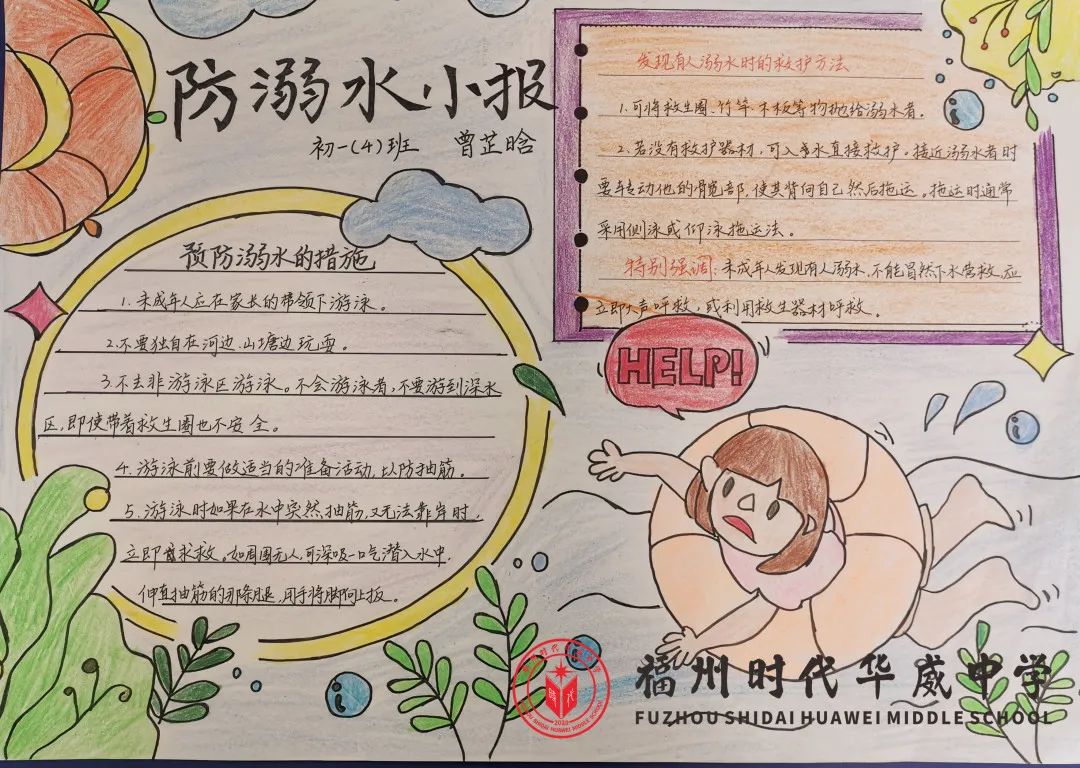 防溺水小报
初一(4)班 曾芷晗
预防溺水的措施
1.未成年人应在家长的带领下游泳。
2.不要独自在河边、山塘边玩耍。
3.不去非游泳区游泳。不会游泳者,不要游到深水
区,即使带着救生圈也不安全。
4.游泳前要做适当的准备活动,以防抽筋。
5.游泳时如果在水中突然抽筋,又无法靠岸时,
立即求救。如周围无人,可深吸一口气潜入水中,
伸直抽筋的那条腿,用手将脚向上扳。
发现有人溺水时的救护方法
1.可将救生圈、竹竿、木板等物抛给溺水者。
2.若没有救护器材,可入水直接救护。接近溺水者时
要转动他的髋部,使其背向自己然后拖运。拖运时通常
采用侧泳或仰泳拖运法。
特别强调:未成年人发现有人溺水,不能冒然下水营救,应
立即大声呼救,或利用救生器材呼救。
HELP!
福州时代华威中学
FUZHOU SHIDAI HUAWEI MIDDLE SCHOOL
时代
2020